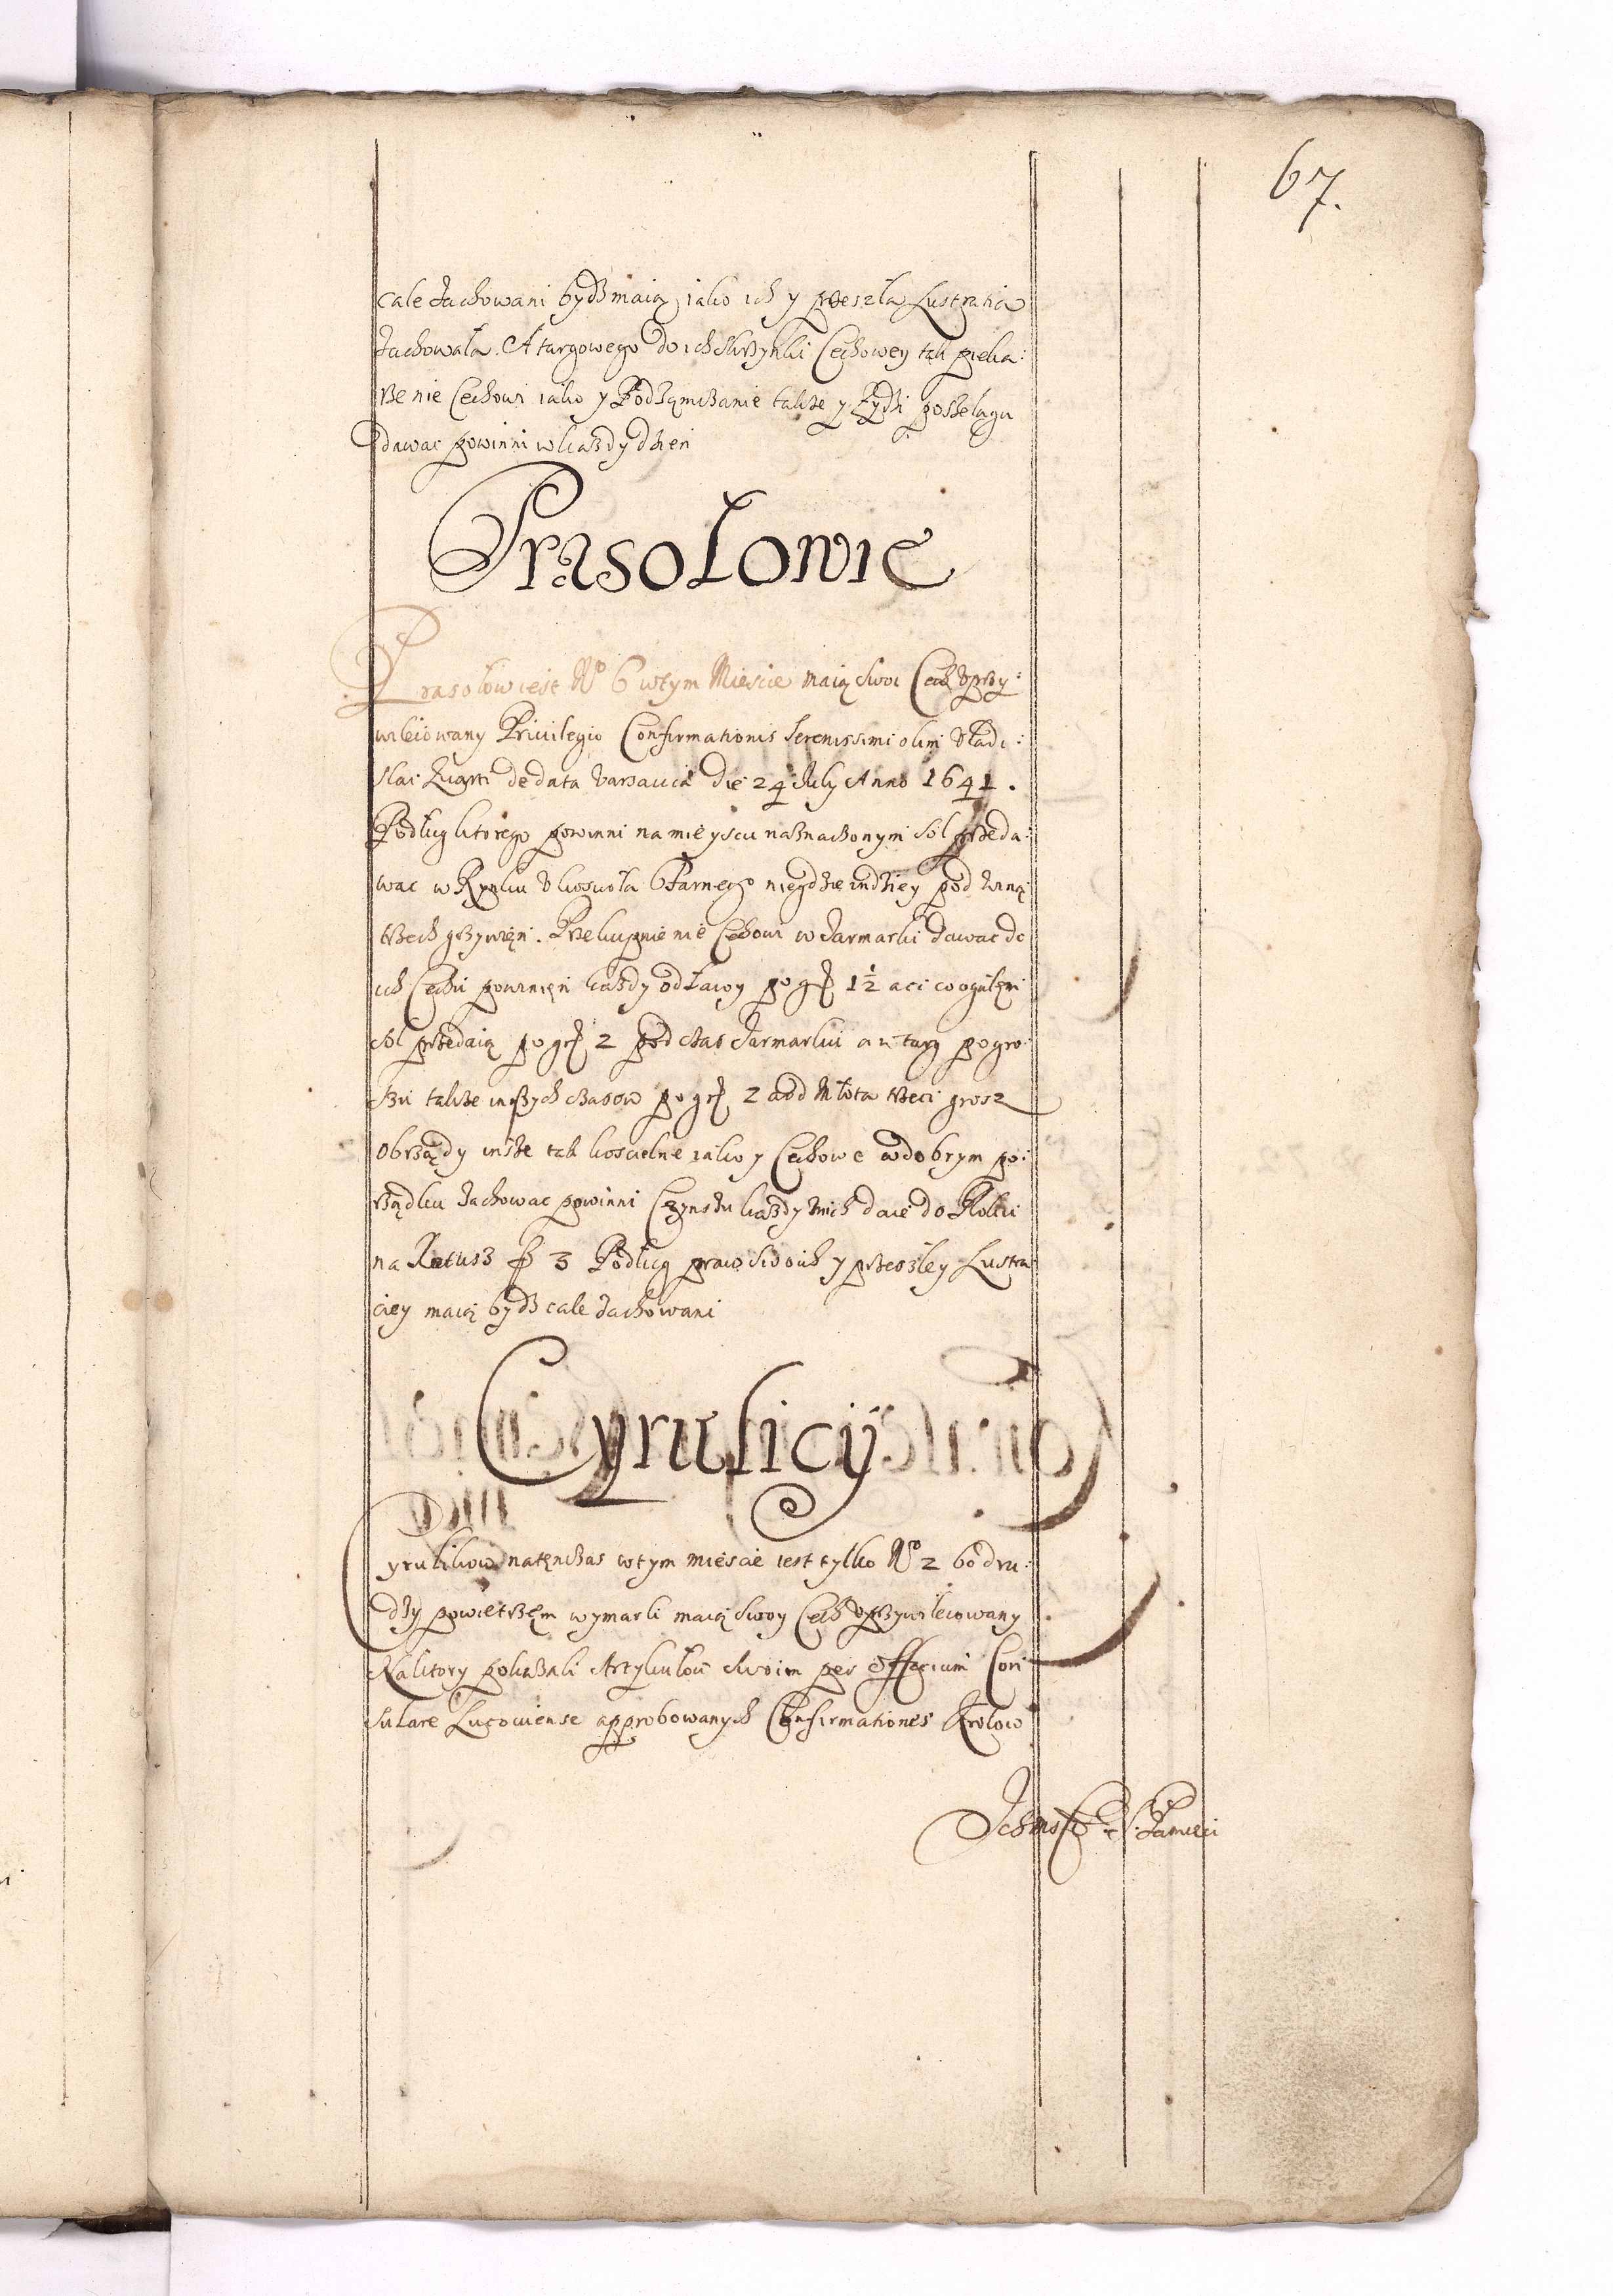 67.
cale zachowani bydz maią iako ich y przeszła Lustratia
zachowała. A targowego do ich skrzynki Cechowey tak pieka:
rze nie Cechowi iako y Podzamczanie takze y Zydzi poszelągu
dawac powinni wkazdy dzien
Prasołowie
Prasołow iest No 6 wtym Miescie maią swoi Cech vprzy:
wileiowany Priuilegio Confirmationis Serenissimi olim Vladi:
slai Quarti de data Varsauiæ die 24 July Anno 1641.
Podług ktorego powinni na mieyscu naznaczonym sol przeda:
wac w Rynku v koscioła Farnego niegdzie indziey pod winą
trzech grzywięn. Przekupnie nie Cechowi w Jarmarki dawac do
ich Cechu powinięn kazdy od ławy po gr 1½ a ci co ogułęm
sol przedaią po gr 2 pod czas Jarmarku a w targ po gro:
szu takze inszych czasow po gr 2 a od Młota trzeci grosz
obrządy insze tak koscielne iako y Cechowe w dobrym po:
rządku zachowac powinni Czynszu kazdy znich daie do Roku
na Ratusz fl 3 Podług praw swoich y przeszłey Lustra
ciey maią bydz cale zachowani
Cyrulicy
Cyrulikow natęnczas wtym miescie iest tylko No 2 bo dru:
dzy powietrzęm wymarli maią swoy Cech vprzywileiowany
Na ktory pokazali Artykułow swoim per officium Con
sulare Lucoviense approbowanych Confirmationes Krolow
Ichmsc S: Pamięci